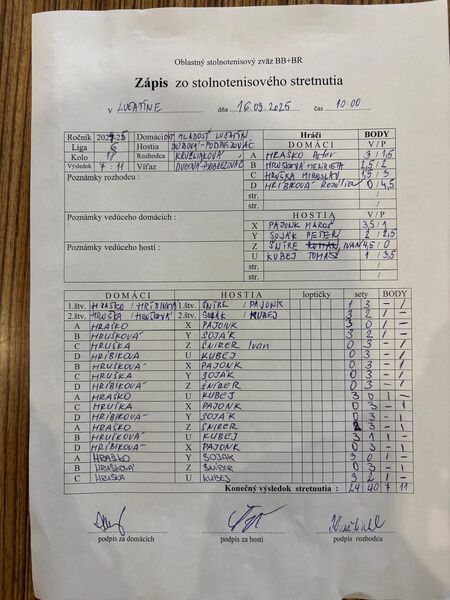 Oblastný stolnotenisový zväz BB+BR
Zápis zo stolnotenisového stretnutia
v LUČATÍNE dňa 16.09.2025 čas 10:00
Ročník Domáci OŠ MLADOSŤ LUČATÍN Hráči BODY
Liga 6 Hostia DUBOVÁ-PODBREZOVÁC DOMÁCI V/P
Kolo Rozhodca A HRAŠKO Peter 3/1,5
Výsledok 7 11 Víťaz DUBOVÁ-PODBREZOVÁC B HRUŠKOVÁ HENRIETA 2,5/2
Poznámky rozhodcu : C HRUŠKA MIROSLAV 1,5/3
D HRÍBIKOVÁ Rozália 0/4,5
str. /
str. /
Poznámky vedúceho domácich : HOSTIA V/P
X PAJONK MAROŠ 3,5/1
Y SOJÁK PETER 2/2,5
Poznámky vedúceho hostí : Z IVAN 4,5/0
U KUBEJ TOMÁŠ 1/3,5
str. /
str. /
DOMÁCI HOSTIA loptičky sety BODY
1.štv. HRAŠKO / HRÍBIKOVÁ 1.štv. ŠNÍRE / PAJONK 1 3 - 1
2.štv. HRUŠKA / HRUŠKOVÁ 2.štv. SOJÁK / KUBEJ 3 2 1 -
A HRAŠKO X PAJONK 3 0 1 -
B HRUŠKOVÁ Y SOJÁK 3 2 1 -
C HRUŠKA Z ŠNIRER Ivan 0 3 - 1
D HRÍBIKOVÁ U KUBEJ 0 3 - 1
B HRUŠKOVÁ X PAJONK 0 3 - 1
C HRUŠKA Y SOJÁK 0 3 - 1
D HRÍBIKOVÁ Z ŠNIRER 0 3 - 1
A HRAŠKO U KUBEJ 3 0 1 -
C HRUŠKA X PAJONK 0 3 - 1
D HRÍBIKOVÁ Y SOJÁK 0 3 - 1
A HRAŠKO Z ŠNIRER 3 - 1
B HRUŠKOVÁ U KUBEJ 3 1 1 -
D HRÍBIKOVÁ X PAJONK 0 3 - 1
A HRAŠKO Y SOJÁK 3 0 1 -
B HRUŠKOVÁ Z ŠNIRER 0 3 - 1
C HRUŠKA U KUBEJ 3 2 1 -
Konečný výsledok stretnutia : 24 40 7 11
podpis za domácich podpis za hostí podpis rozhodcu